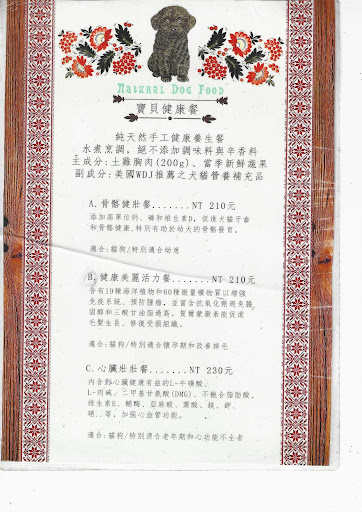 Natural Dog Food
寶貝健康餐
純天然手工健康養生餐
水煮烹調,絕不添加調味料與辛香料
主成分:土雞胸肉(200g)、當季新鮮蔬果
副成分:美國WDJ推薦之犬貓營養補充品
A.骨骼健壯餐.......NT 210元
添加高單位鈣、磷和維生素D,促進犬貓牙齒
和骨骼健康,特別有助於幼犬的骨骼發育。
適合:貓狗/特別適合幼崽
B.健康美麗活力餐.......NT 210元
含有19種海洋植物和60種微量礦物質以增強
免疫系統、預防腫瘤,並富含抗氧化劑避免膽
固醇和三酸甘油脂過高。賀爾蒙激素能促進
毛髮生長、修復受損組織。
適合:貓狗/特別適合懷孕期和改善掉毛
C.心臟壯壯餐.......NT 230元
內含對心臟健康有益的L-牛磺酸、
L-肉鹼、二甲基甘氨酸(DMG)、不飽合脂肪酸、
維生素E、輔酶、亞麻酸、葉酸、鎂、鉀、
硒..等,加強心血管功能。
適合:貓狗/特別適合老年期和心功能不全者